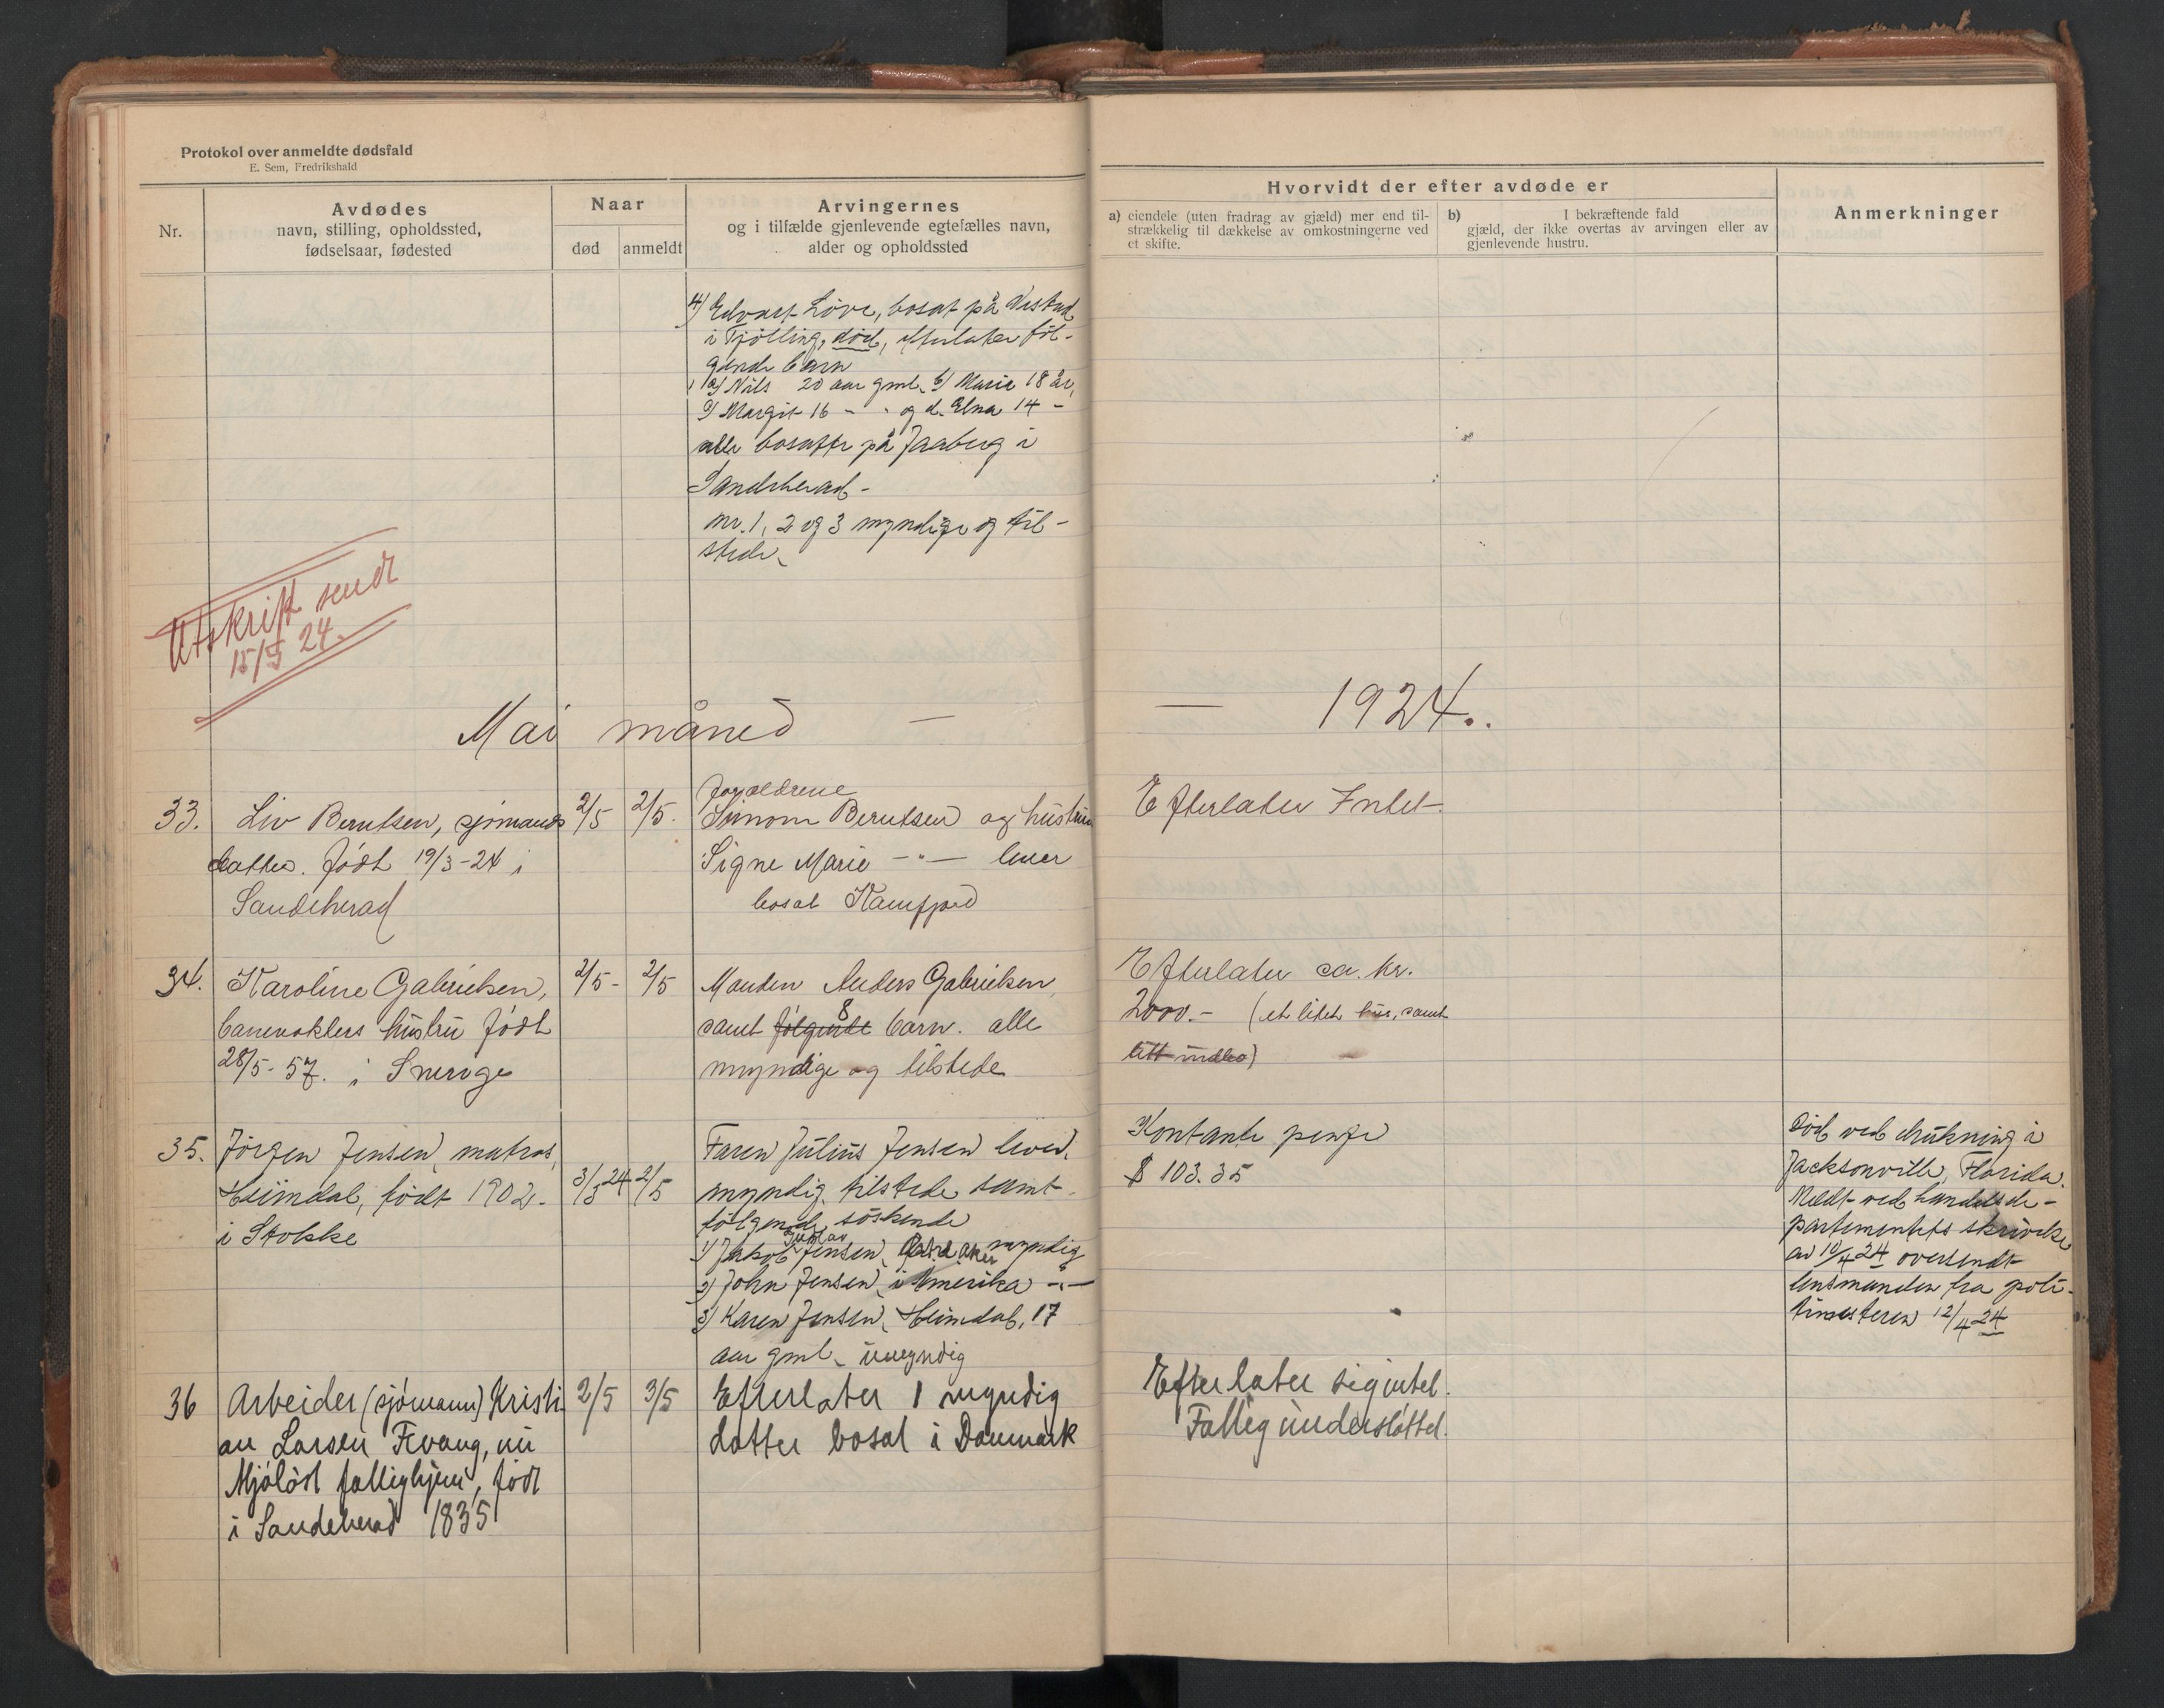 Protokol over anmeldte dødsfald
E. Sem, Fredrikshald
Nr.
Avdødes
navn, stilling, opholdssted,
fødselsaar, fødested
Naar
død
anmeldt
Arvingernes
og i tilfælde gjenlevende egtefælles navn,
alder og opholdssted
Hvorvidt der efter avdøde er
a) eiendele (uten fradrag av gjæld) mer end til-
strækkelig til dækkelse av omkostningerne ved
et skifte.
b) I bekræftende fald
gjæld, der ikke overtas av arvingen eller av
gjenlevende hustru.
Anmerkninger
4) Edvart Løve, bosat på
i Tjølling, død, efterlater føl-
gende barn
a) Nils 20 aar gml. b) Marie 18 år,
c) Margit 16 - og d. Elna 14 -
alle bosatte på Jaaberg i
Sandeherad -
nr. 1, 2 og 3 myndige og til-
stede.
Utskrift sendt
15/5 24.
Mai måned —
— 1924..
33. Liv Berntsen, sjømands
datter. født 19/3-24 i
Sandeherad
2/5 2/5.
Forældrene
Simon Berntsen og hustru
Signe Marie -"- lever
bosat Kamfjord
Efterlater Intet
34. Karoline Gabrielsen,
banevokters hustru født
28/5-57. i Sverige
2/5- 2/5
Manden Anders Gabrielsen,
samt følgende 8 barn. alle
myndige og tilstede
Efterlater ca. kr.
2000.- (et litet hus, samt
litt indbo)
35. Jørgen Jensen, matros,
Heimdal, født 1902.
i Stokke
3/3 24 2/5
Faren Julius Jensen lever,
myndig, tilstede samt
følgende søskende
1) Jakob Gustav Jensen, myndig
2) John Jensen, i Amerika -"-
3) Karen Jensen, Heimdal, 17
aar gml. umyndig
Kontante penge
$ 103.35
Død ved drukning i
Jacksonville, Florida.
Meldt ved handelsde-
partementets skrivelse
av 10/4 24 oversendt
lensmanden fra poli-
timesteren 12/4 24
36 Arbeider (sjømann) Kristi
an Larsen Fevang, nu
Mjøløst fattighjem, født
i Sandeherad 1835
2/5 3/5
Efterlater 1 myndig
datter bosat i Danmark
Efterlater sig intet.
Fattigunderstøttet.